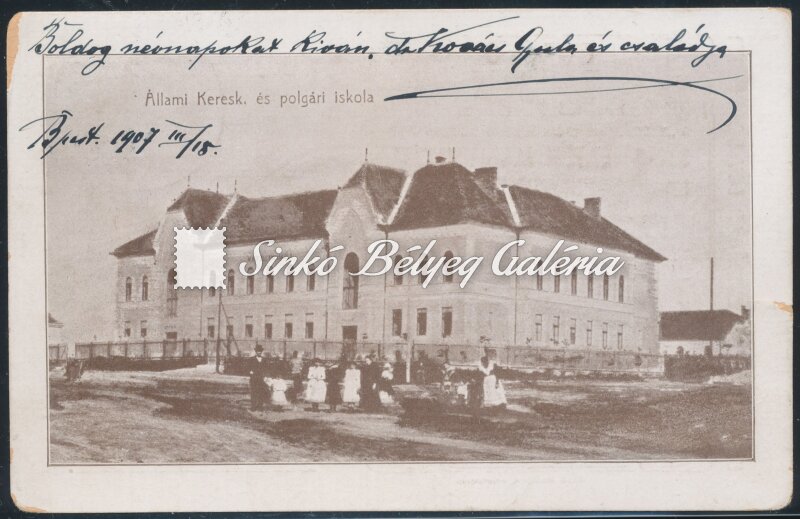 Boldog névnapokat kiván, dr Kovács Gyula és családja
Állami Keresk. és polgári iskola
Bpest. 1907 III/18.
Sinkó Bélyeg Galéria